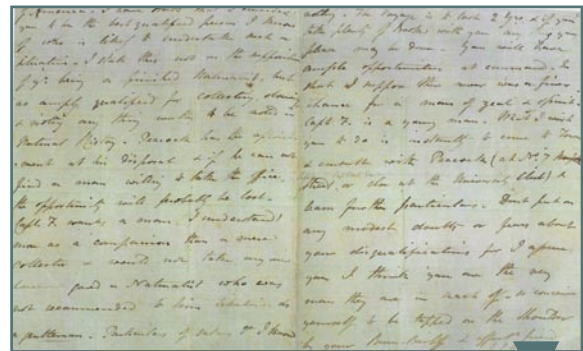 of America — I have stated that I consider
you to be the best qualified person I know
of who is likely to undertake such a
situation — I state this not on the supposition
of yr. being a finished Naturalist, but
as amply qualified for collecting, observing
& noting any thing worthy to be noted in
Natural History. Peacock has the appoint-
ment at his disposal & if he can not
find a man willing to take the office,
the opportunity will probably be lost —
Capt. F. wants a man (I understand)
more as a companion than a mere
collector & would not take any one
however good a Naturalist who was
not recommended to him likewise as
a gentleman. Particulars of salary &c I know
nothing. The Voyage is to last 2 yrs. & if you
take plenty of Books with you, any thing you
please may be done — You will have
ample opportunities at command — In
short I suppose there never was a finer
chance for a man of zeal & spirit.
Capt. F. is a young man. What I wish
you to do is instantly to come to Town
& consult with Peacock (at No. 7 Suffolk
Street or else at the University Club) &
learn further particulars. Don't put on
any modest doubts or fears about
your disqualifications for I assure
you I think you are the very
man they are in search of — so conceive
yourself to be tapped on the Shoulder
by your Bum-Bailiff & affecte friend